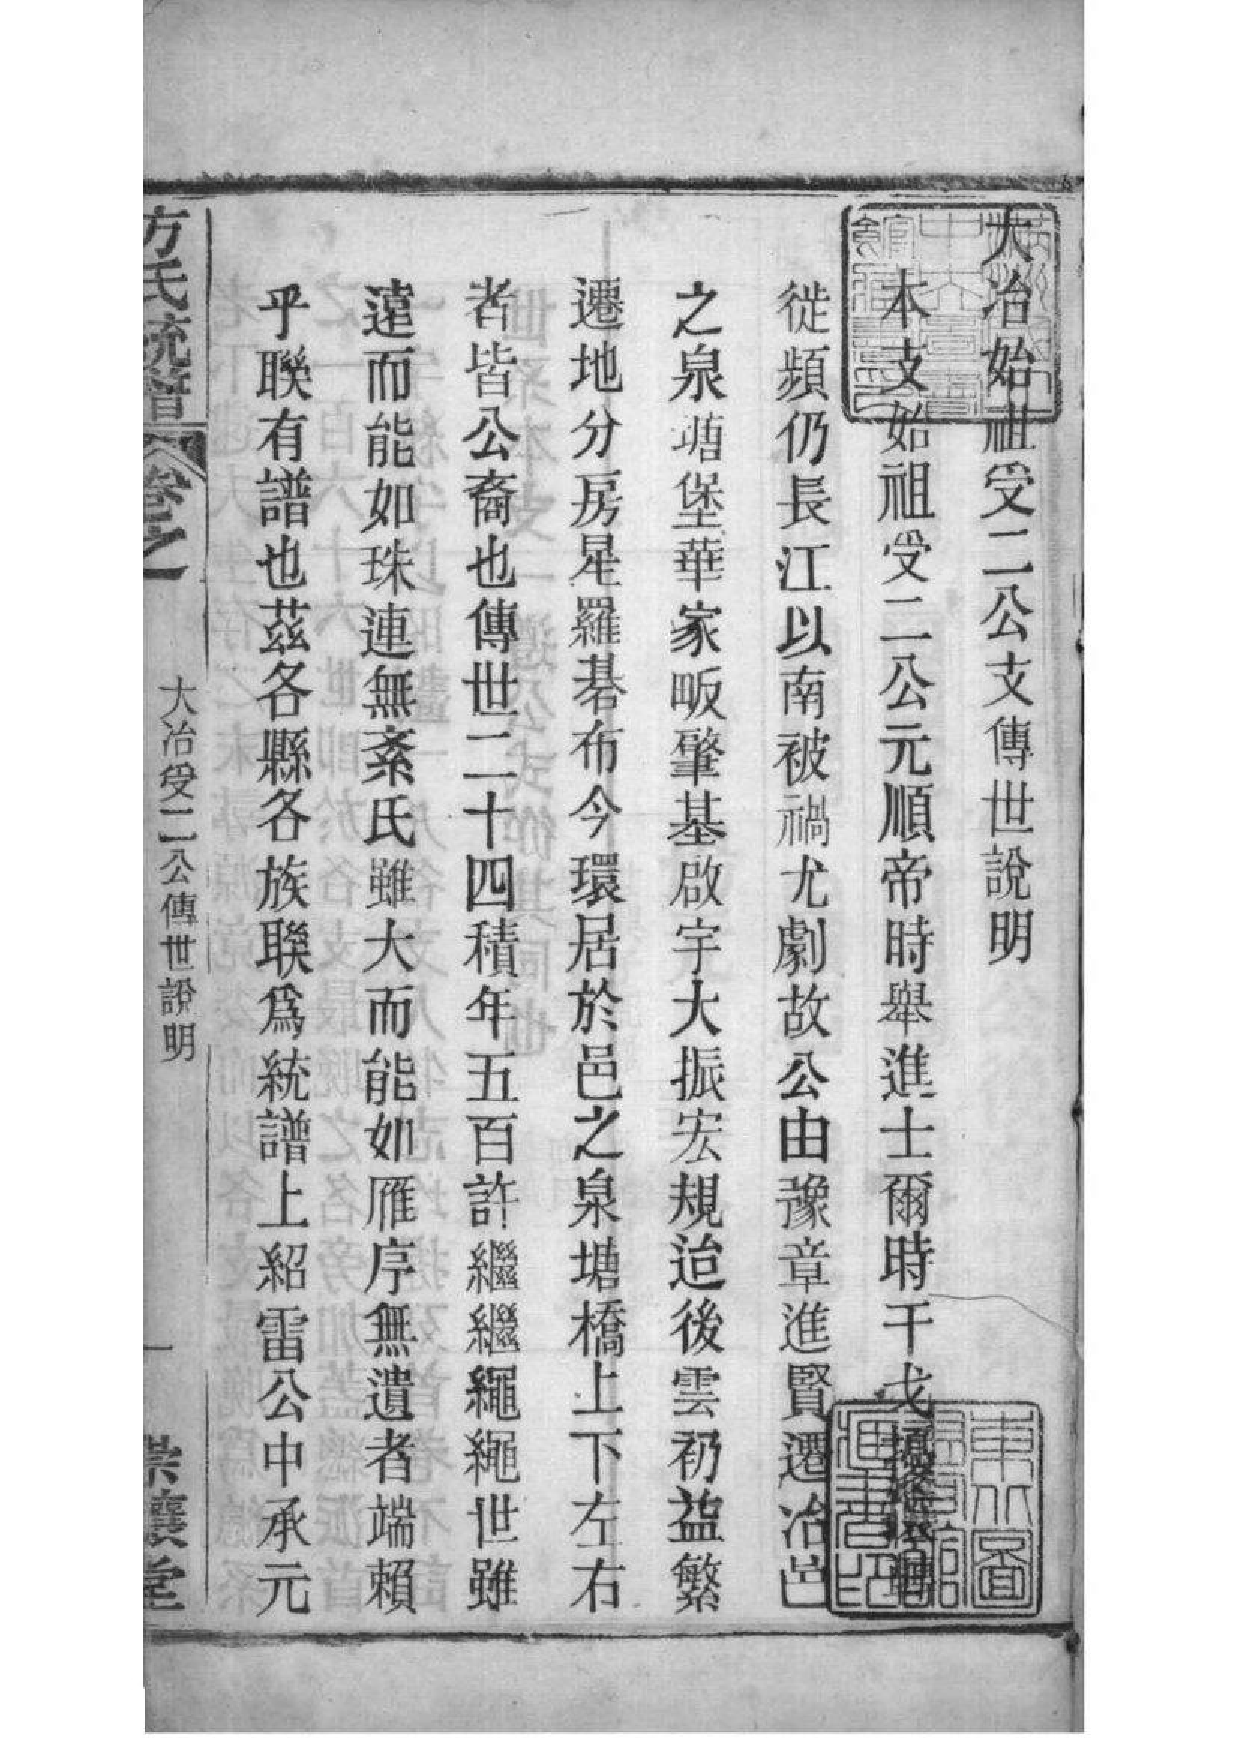 大冶始祖受二公支傳世說明
本支始祖受二公元順帝時舉進士爾時干戈擾攘
徙頻仍長江以南被禍尤劇故公由豫章進賢遷冶邑
之泉塘堡華家畈肇基啟宇大振宏規迨後雲礽益繁
遷地分房星羅碁布今環居於邑之泉塘橋上下左右
者皆公裔也傳世二十四積年五百許繼繼繩繩世雖
遠而能如珠連無紊氏雖大而能如雁序無遺者端賴
乎聯有譜也茲各縣各族聯爲統譜上紹雷公中承元
方氏統譜 卷之一
大冶受二公傳世說明
一
崇讓堂